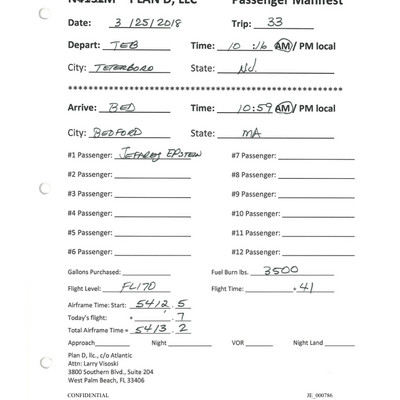 N4132M PLAN D, LLC Passenger Manifest
Date: 3 /25/2018 Trip: 33
Depart: TEB Time: 10 :16 AM/ PM local
City: TETERBORO State: NJ.
Arrive: BED Time: 10:59 AM/ PM local
City: BEDFORD State: MA
#1 Passenger: JEFFREY EPSTEIN #7 Passenger:
#2 Passenger: #8 Passenger:
#3 Passenger: #9 Passenger:
#4 Passenger: #10 Passenger:
#5 Passenger: #11 Passenger:
#6 Passenger: #12 Passenger:
Gallons Purchased: Fuel Burn lbs. 3500
Flight Level: FL170 Flight Time: + 41
Airframe Time: Start: 5412 . 5
Today's flight: + . 7
Total Airframe Time = 5413 . 2
Approach Night VOR Night Land
Plan D, llc., c/o Atlantic
Attn: Larry Visoski
3800 Southern Blvd., Suite 204
West Palm Beach, FL 33406
CONFIDENTIAL JE_000786